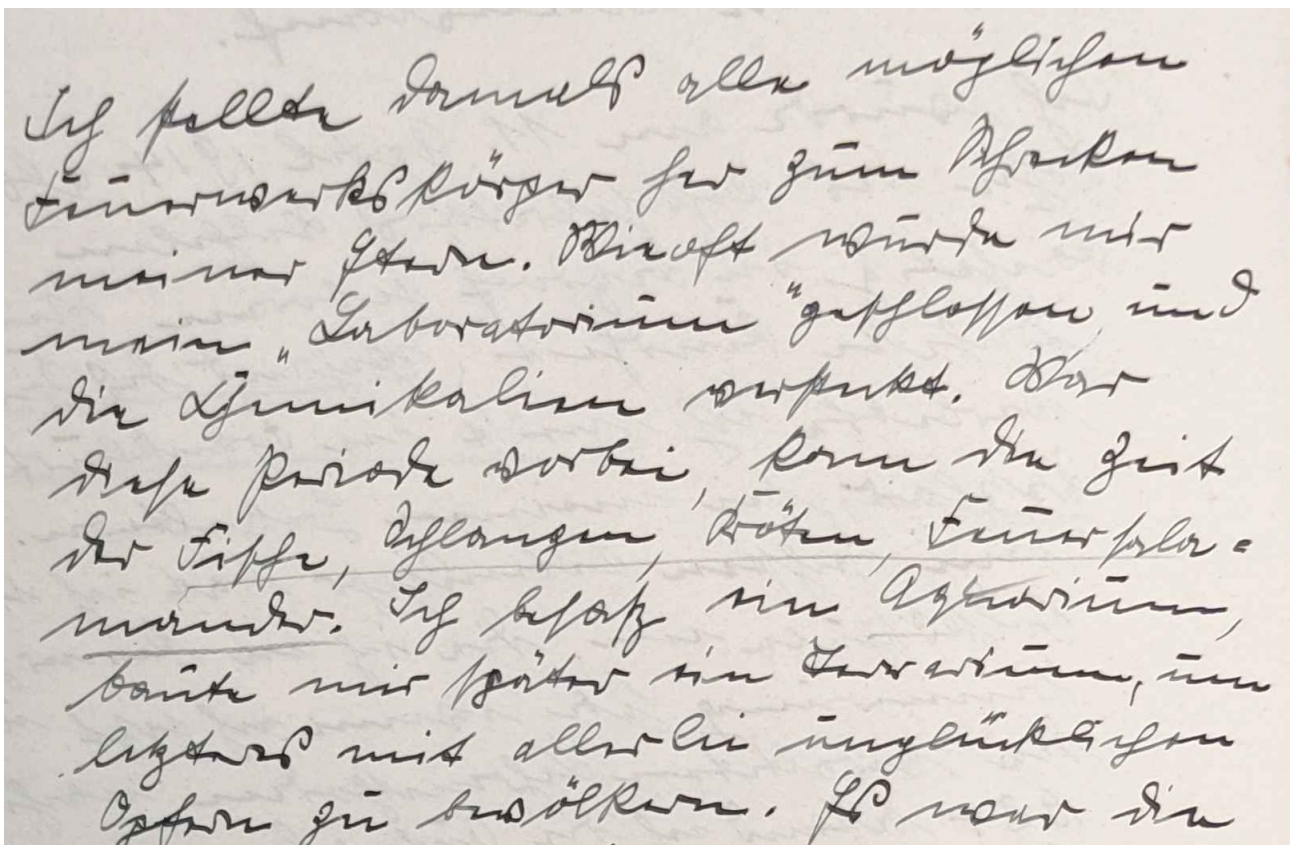 Ich stellte damals alle möglichen
Feuerwerkskörper her zum Schrecken
meiner Eltern. Wie oft wurde mir
mein „Laboratorium“ geschlossen und
die Chemikalien versteckt. War
diese Periode vorbei, kam die Zeit
der Fische, Schlangen, Kröten, Feuersala=
mander. Ich besaß ein Aquarium,
baute mir später ein Terrarium, um
letzteres mit allerlei unglücklichen
Opfern zu bevölkern. Es war die